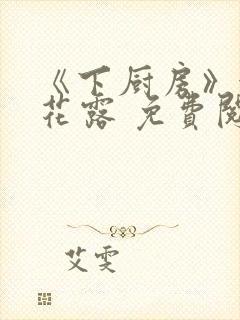 《下厨房》
花露 免費閱
艾雯